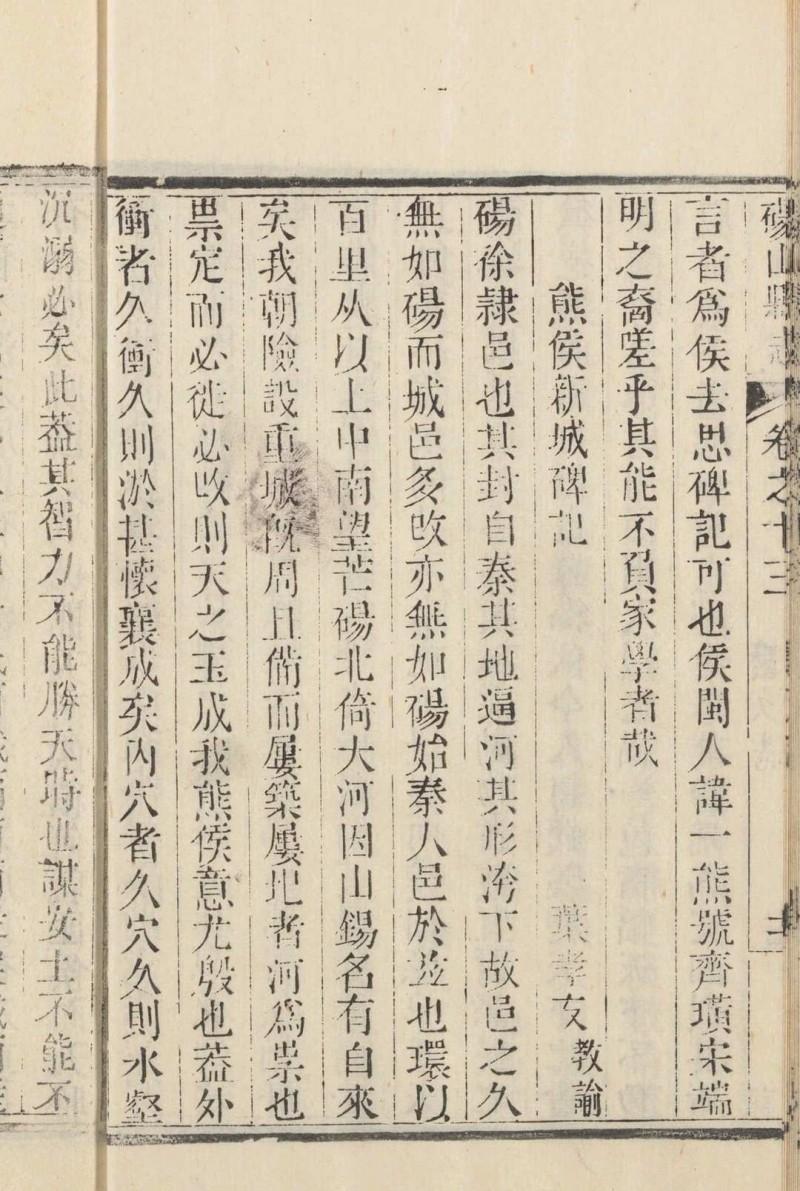 碭山縣志 卷之十三
言者爲侯去思碑記可也侯閩人諱一熊號齊璜宋端
明之裔嗟乎其能不負家學者哉
熊侯新城碑記 葉孝友 教諭
碭徐隸邑也其封自秦其地逼河其形洿下故邑之久
無如碭而城邑多改亦無如碭始秦人邑於茲也環以
百里从以上中南望芒碭北倚大河因山錫名有自來
矣我朝險設重城既周且備而屢築屢圮者河爲祟也
祟定而必徙必改則天之玉成我熊侯意尤殷也葢外
衝者久衝久則淤甚懷襄成矣內穴者久穴久則水壑
沉溺必矣此葢其智力不能勝天時也謀安土不能不